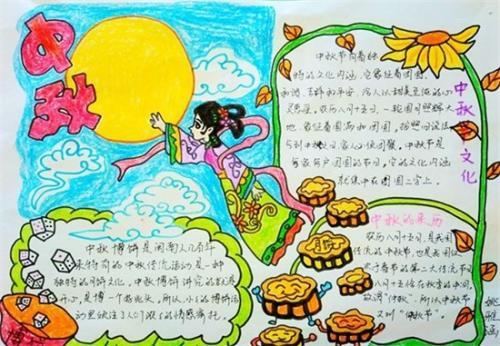 中秋
中秋节有着独
特的文化内涵,它象征着团圆、
和谐、和平安,给人以甜美的心
灵慰藉。农历八月十五日,一轮圆月照辉大
地 象征着圆满和团圆。按照
团聚。中秋节是
每家每户团圆的节日,它的文化内涵
就集中在团圆二字上。
中秋文化
中秋的来历
农历八月十五日,是我国
传统的中秋节,也是我国仅
次于春节的第二大传统节日
八月十五恰在秋季的中间,
故谓“中秋”,所以中秋节
又叫“仲秋节”。
中秋博饼是闽南人几百年
来特有的中秋传统活动,是一种
独特的月饼文化。中秋博饼讲究的就是
开心,是博一个好兆头,所以,小小的博饼活
动里倾注了人们浓浓的情感寄托。